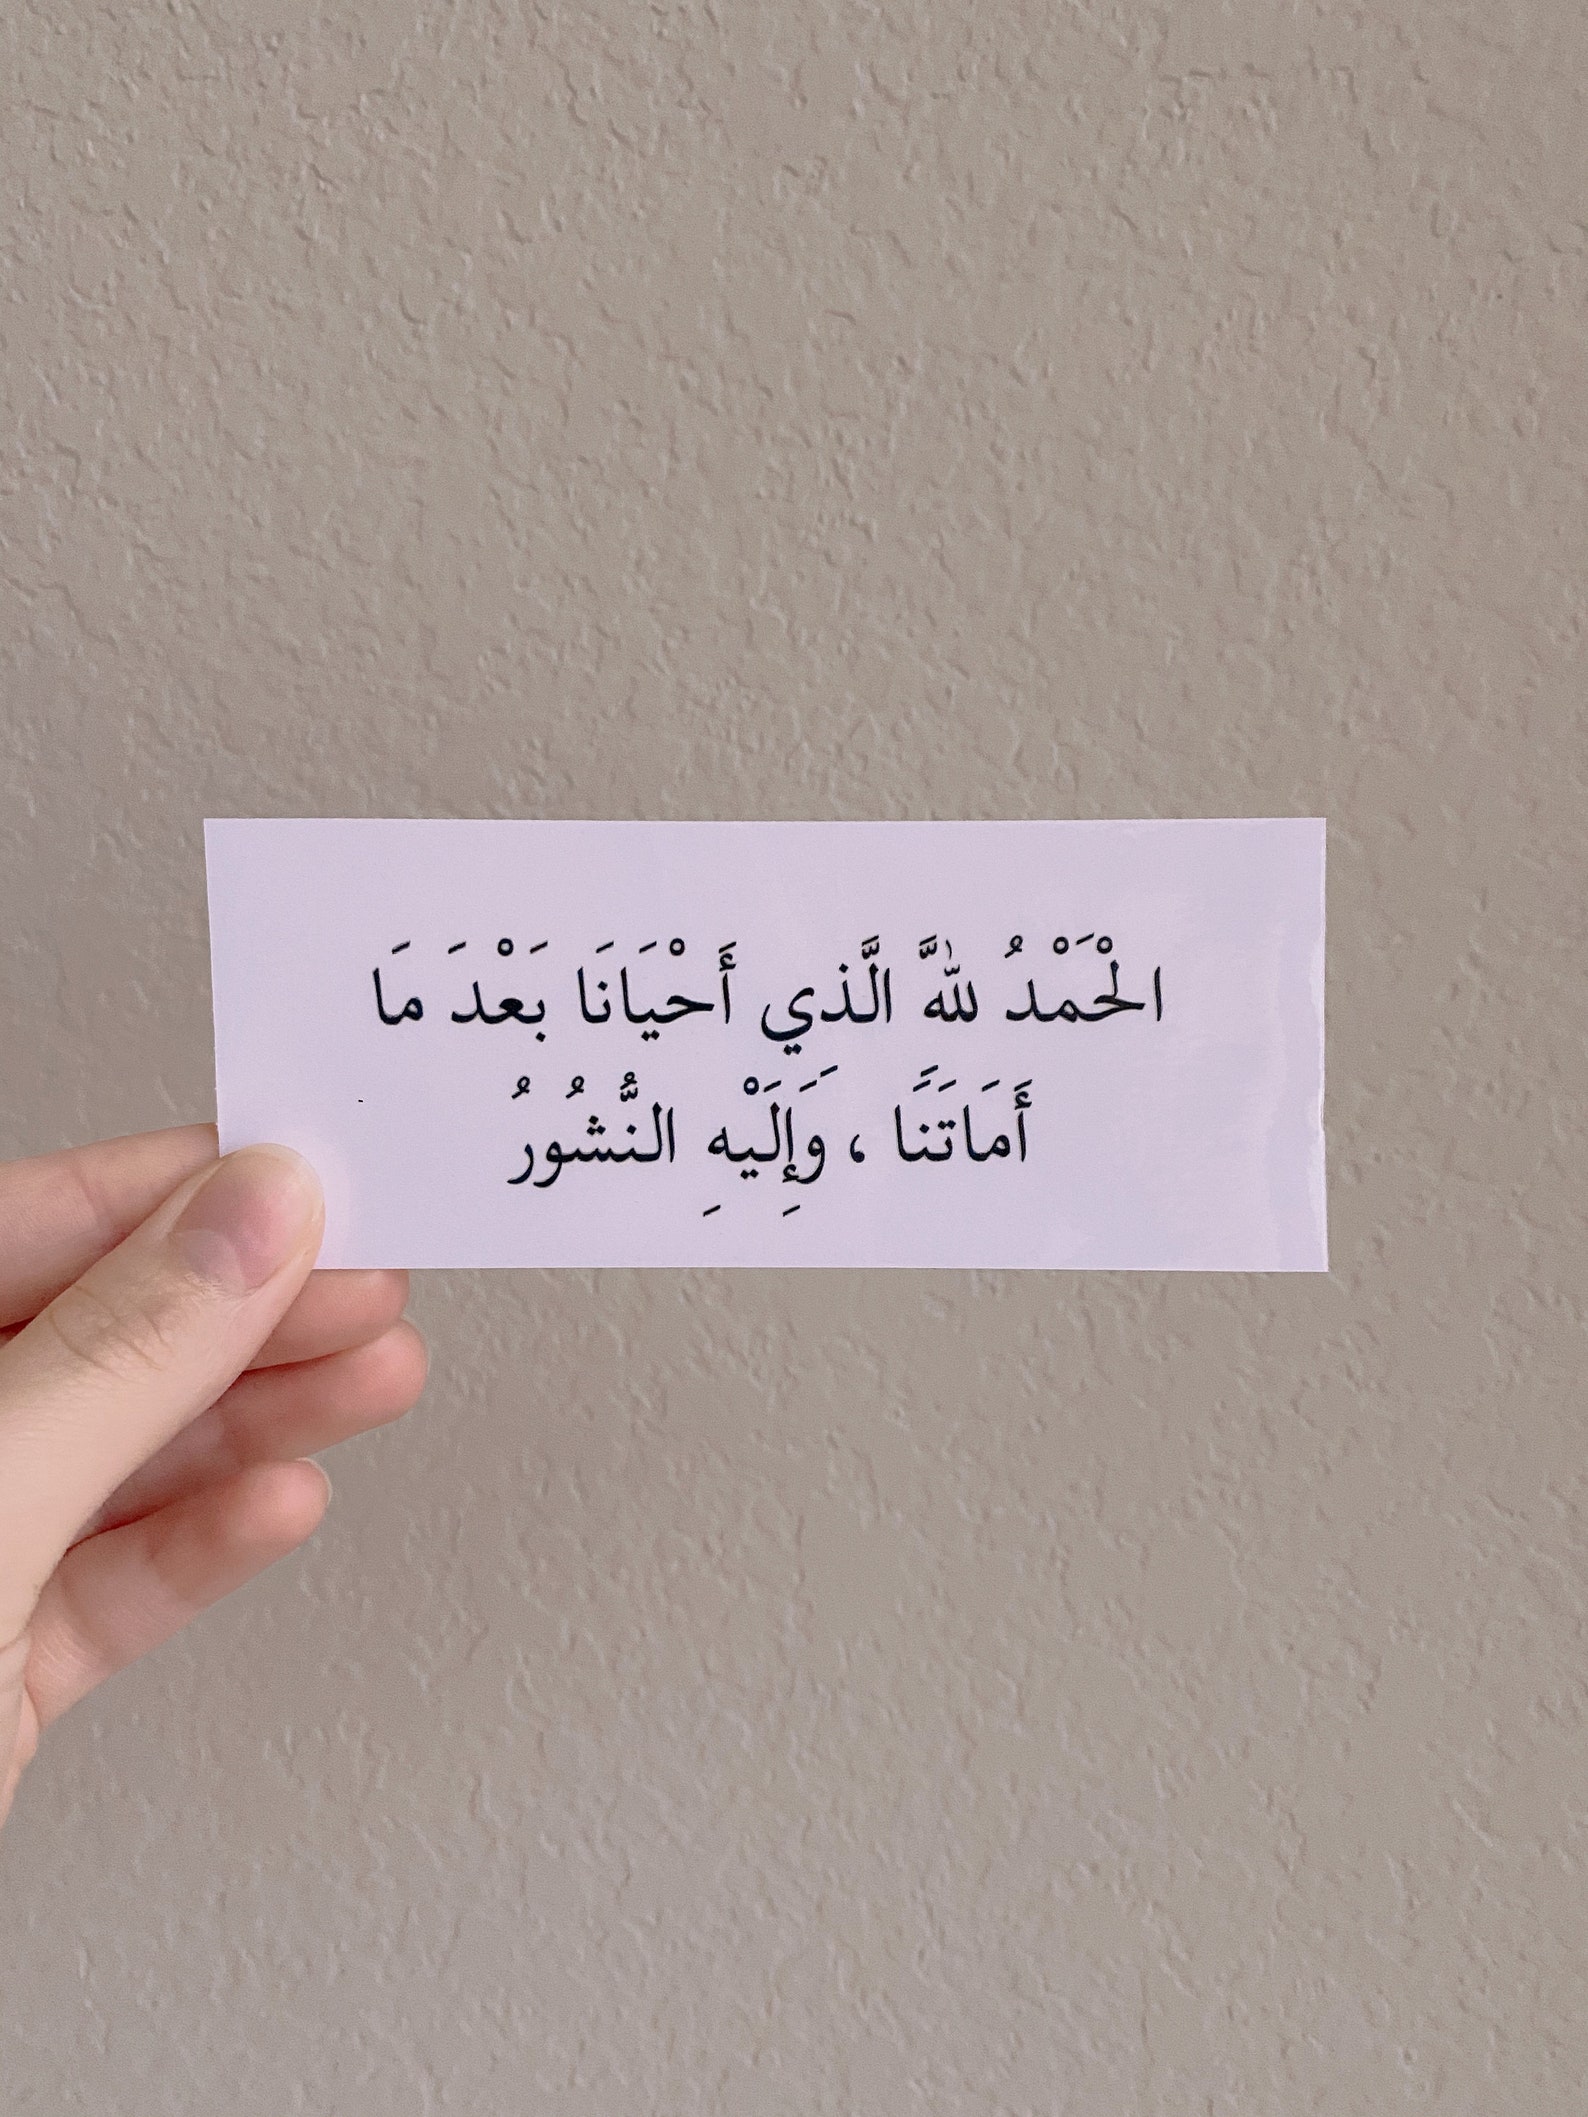 الْحَمْدُ للهَّ الَّذي أَحْيَانَا بَعْدَ مَا
أَمَاتَنَا ، وَإِلَيْهِ النُّشُورُ